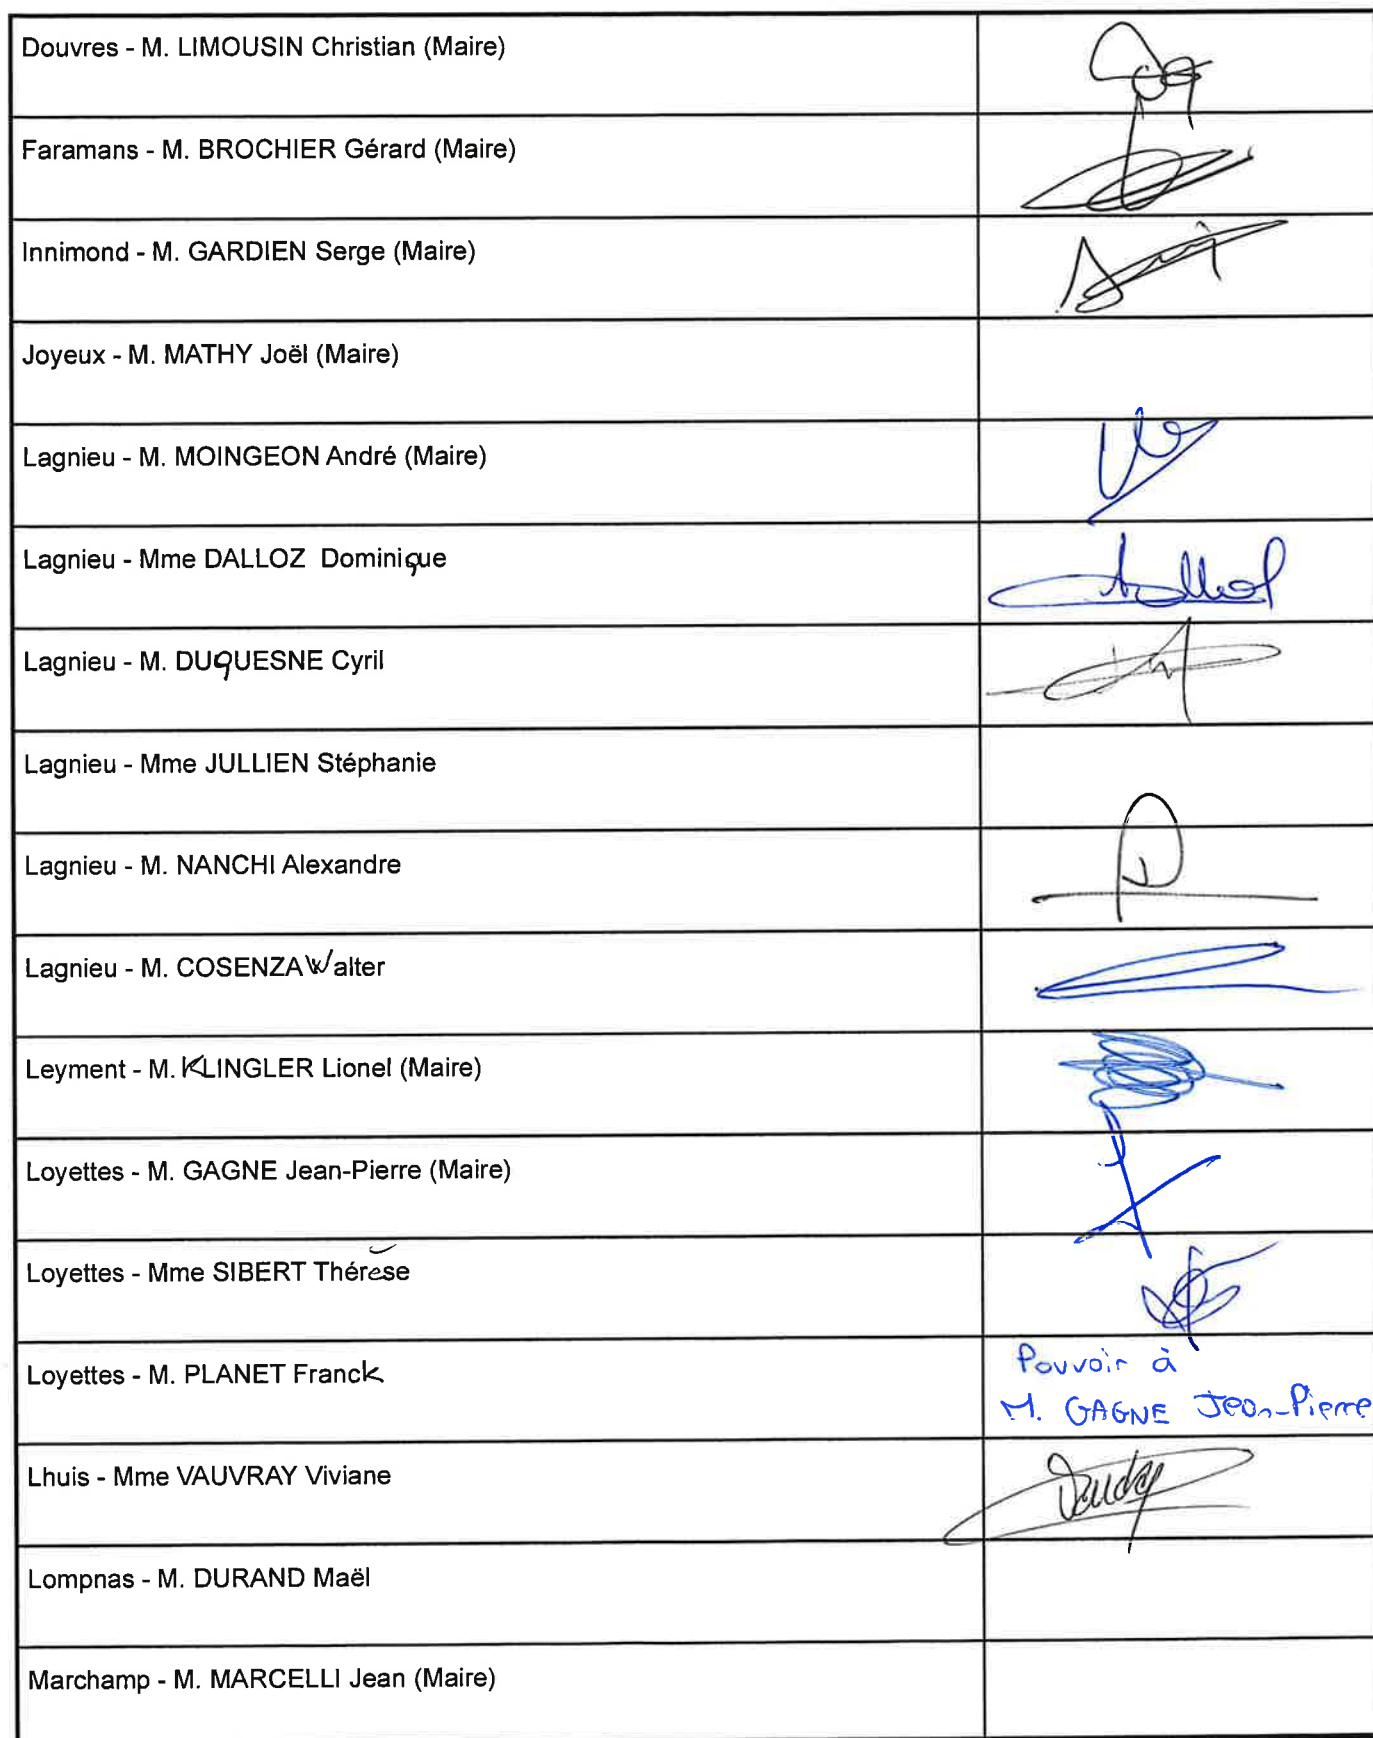 Douvres - M. LIMOUSIN Christian (Maire)
Faramans - M. BROCHIER Gérard (Maire)
Innimond - M. GARDIEN Serge (Maire)
Joyeux - M. MATHY Joël (Maire)
Lagnieu - M. MOINGEON André (Maire)
Lagnieu - Mme DALLOZ Dominique
Lagnieu - M. DUQUESNE Cyril
Lagnieu - Mme JULLIEN Stéphanie
Lagnieu - M. NANCHI Alexandre
Lagnieu - M. COSENZA Walter
Leyment - M. KLINGLER Lionel (Maire)
Loyettes - M. GAGNE Jean-Pierre (Maire)
Loyettes - Mme SIBERT Thérèse
Loyettes - M. PLANET Franck
Pouvoir à
M. GAGNE Jean-Pierre
Lhuis - Mme VAUVRAY Viviane
Lompnas - M. DURAND Maël
Marchamp - M. MARCELLI Jean (Maire)